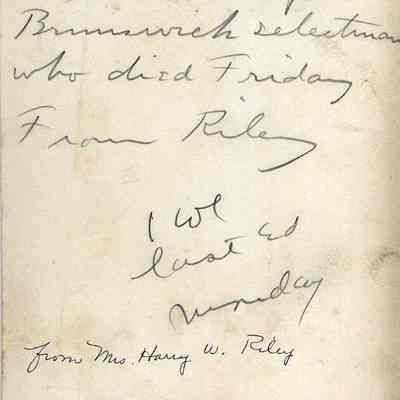 Brunswick selectman
who died Friday
From Riley
1 col
last ed
Monday
from Mrs. Harry W. Riley